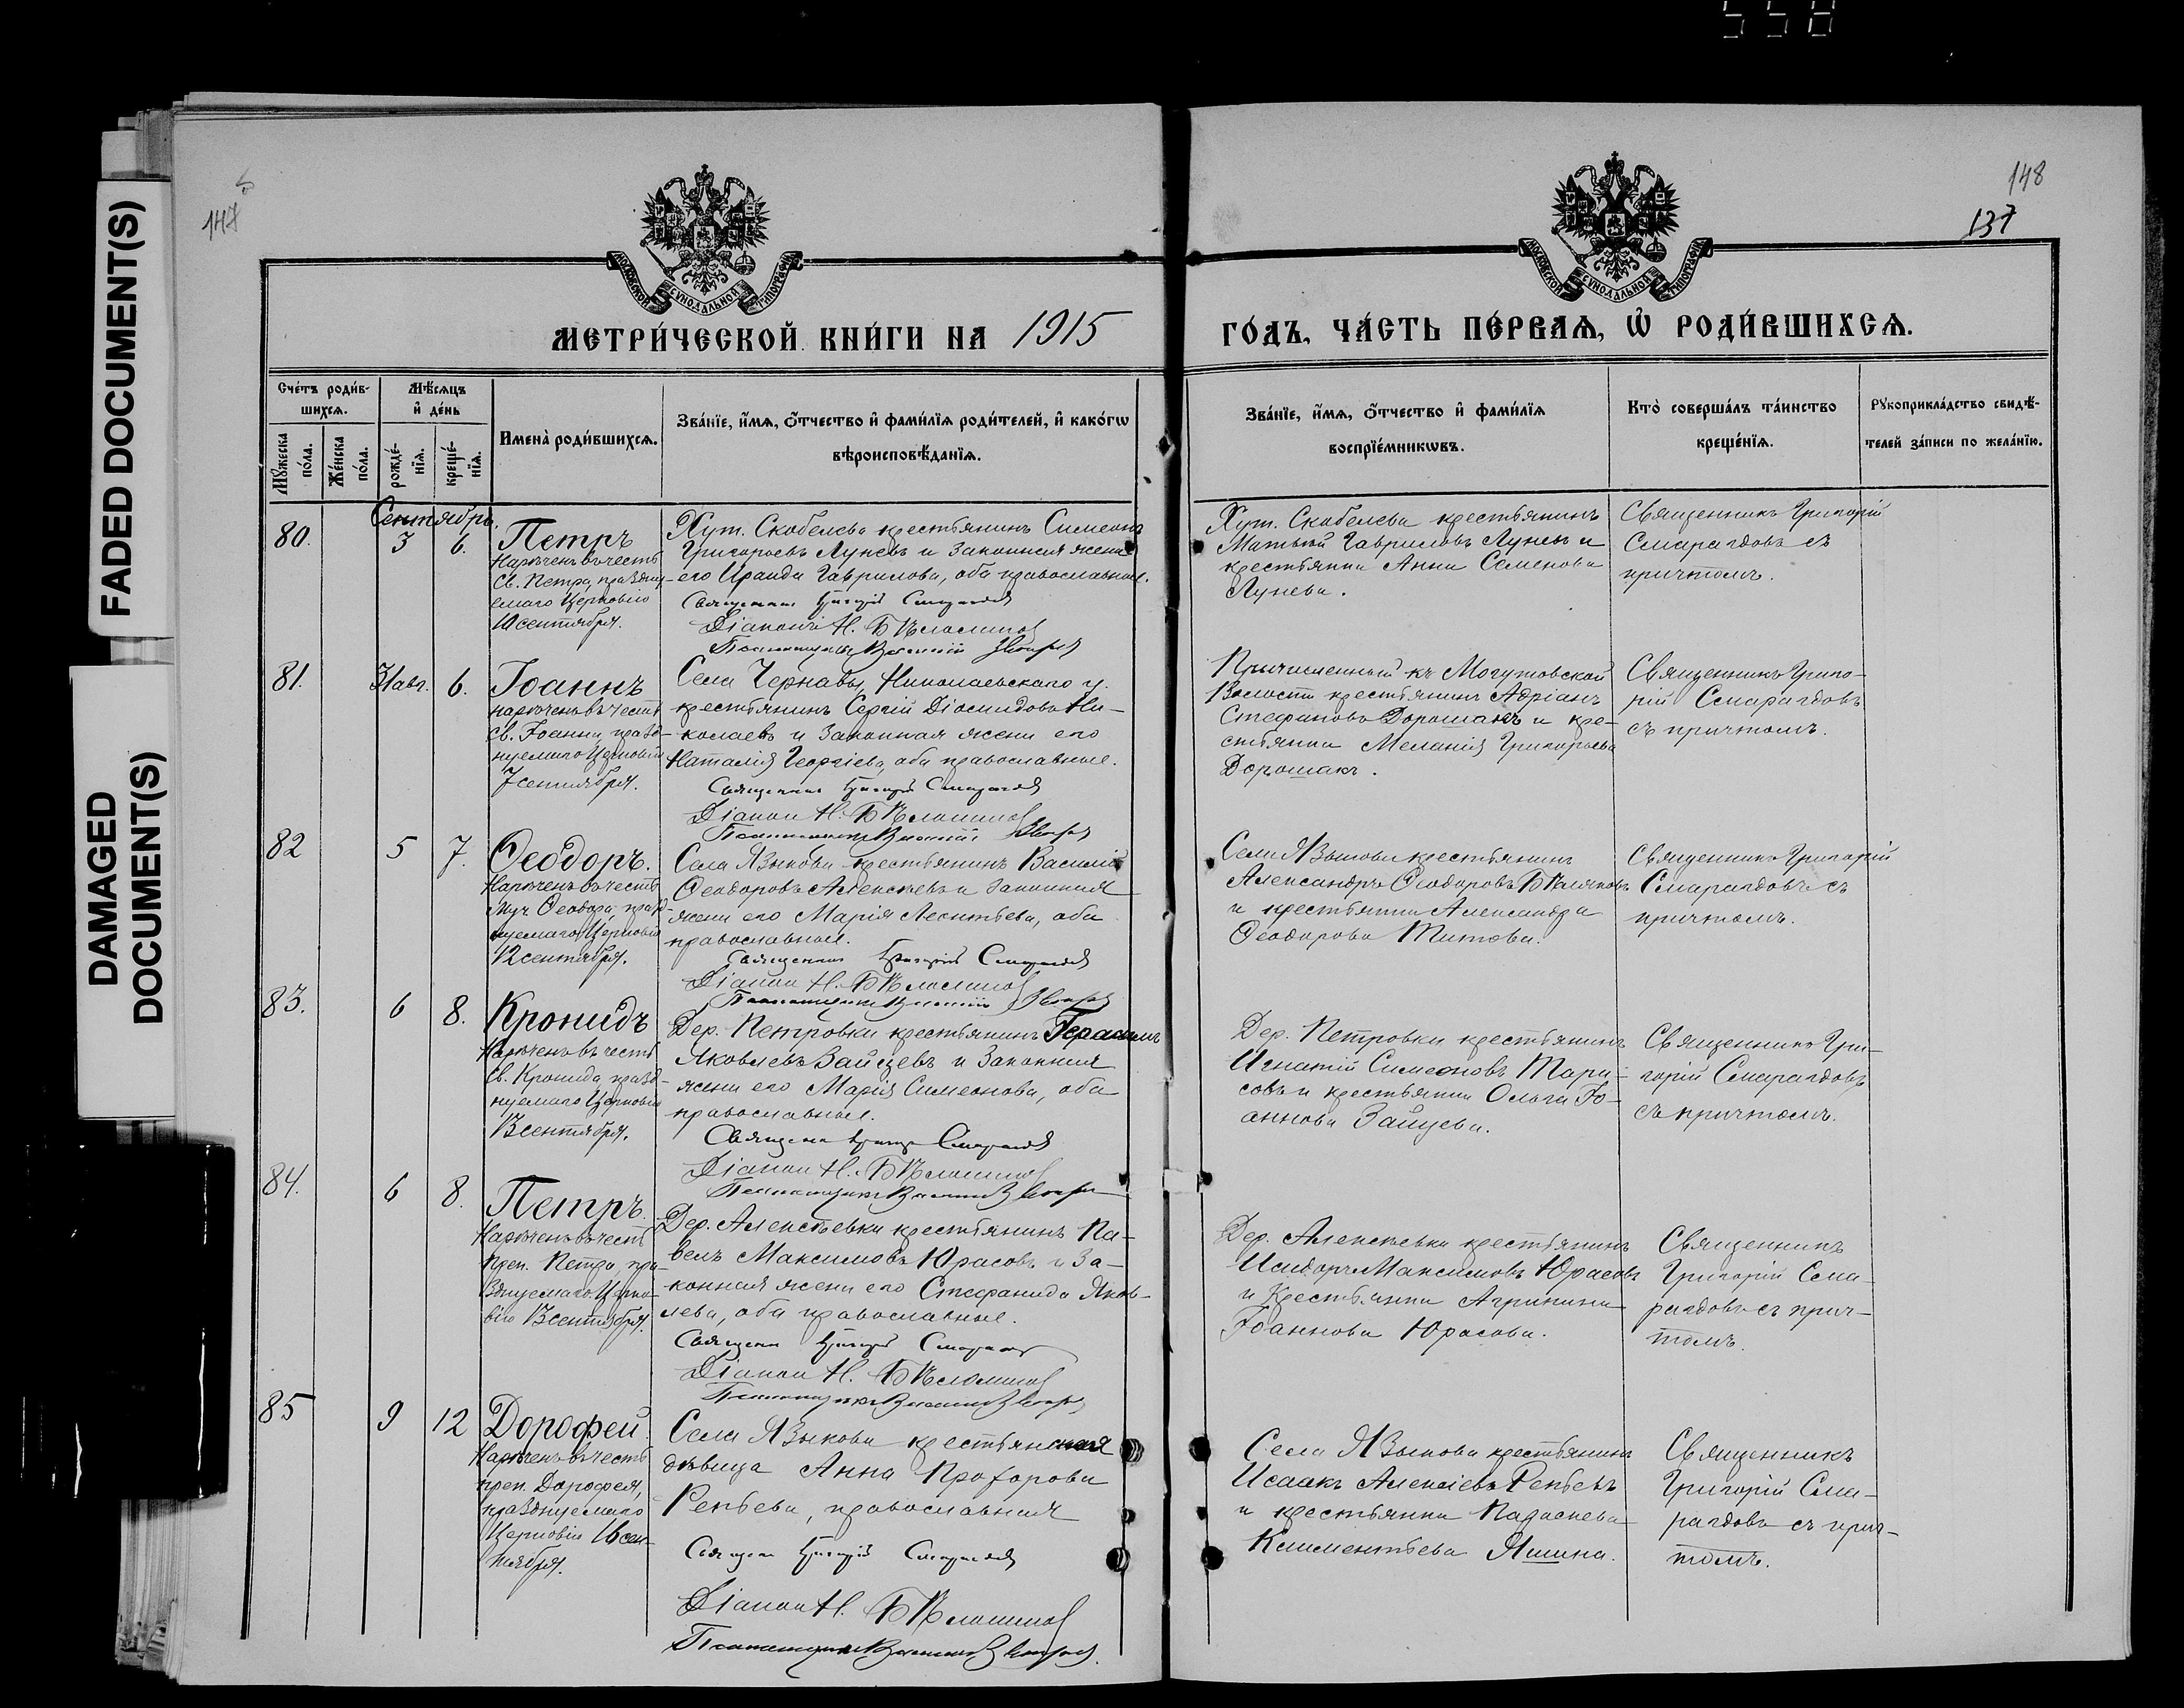 558
FADED DOCUMENT(S)
DAMAGED
DOCUMENT(S)
147
148
137
МОСКОВСКОЙ СѴНОДАЛЬНОЙ ТИПОГРАФІИ
МОСКОВСКОЙ СѴНОДАЛЬНОЙ ТИПОГРАФІИ
МЕТРИ́ЧЕСКОЙ КНИ́ГИ НА 1915
ГО́ДЪ, ЧА́СТЬ ПЕ́РВАѦ, Ѡ РОДИ́ВШИХСѦ.
Сче́тъ роди́в-
шихсѧ.
Мꙋжеска по́ла.
Же́нска по́ла.
Мѣ́сѧцъ
и҆ де́нь
рожде́-
нїѧ.
креще́-
нїѧ.
Имена̀ роди́вшихсѧ.
Зва́нїе, и҆́мѧ, ѻ҆́тчество и҆ фами́лїѧ роди́телей, и҆ како́гѡ
вѣроисповѣ́данїѧ.
Зва́нїе, и҆́мѧ, ѻ҆́тчество и҆ фами́лїѧ
воспрїе́мникѡвъ.
Кто̀ соверша́лъ та́инство
креще́нїѧ.
Рꙋкоприкла́дство свидѣ́-
телей за́писи по жела́нїю.
Сентябрь.
80.
3
6.
Петръ
Нареченъ въ честь
Св. Петра, праздну-
емаго Церковію
10 сентября.
Хут. Скобелева крестьянинъ Симеонъ
Григорьевъ Луневъ и законная жена
его Ираида Гаврилова, оба православные.
Священникъ Григорій Смарагдовъ
Діаконъ Н. Бѣломы
Псаломщикъ Василій
Хут. Скобелева крестьянинъ
Матвѣй Гавриловъ Луневъ и
крестьянка Анна Семенова
Лунева.
Священникъ Григорій
Смарагдовъ съ
причтомъ.
81.
31 авг.
6.
Іоаннъ
нареченъ въ честь
св. Іоанна, празд-
нуемаго Церковію
7 сентября.
Села Чернавы, Николаевскаго у.
крестьянинъ Сергій Діомидовъ Ни-
колаевъ и законная жена его
Наталія Георгіева, оба православные.
Священникъ Григорій Смарагдовъ
Діаконъ Н.
Псаломщикъ Василій
Причисленный къ Могутовской
Волости крестьянинъ Адріанъ
Стефановъ Дорошакъ и кре-
стьянка Меланія Григорьева
Дорошакъ.
Священникъ Григо-
рій Смарагдовъ
съ причтомъ.
82
5
7.
Ѳеодоръ.
Нареченъ въ честь
муч. Ѳеодора, празд-
нуемаго Церковію
12 сентября.
Села Языкова крестьянинъ Василій
Ѳеодоровъ Алексѣевъ и законная
жена его Марія Леонтьева, оба
православные.
Священникъ Григорій Смарагдовъ
Діаконъ Н.
Псаломщикъ Василій
Села Языкова крестьянинъ
Александръ Ѳеодоровъ Бѣляковъ
и крестьянка Александра
Ѳеодорова Титова.
Священникъ Григорій
Смарагдовъ съ
причтомъ.
83.
6
8.
Кронидъ
Нареченъ въ честь
св. Кронида, празд-
нуемаго Церковію
13 сентября.
Дер. Петровки крестьянинъ Герасимъ
Яковлевъ Зайцевъ и законная
жена его Марія Симеонова, оба
православные.
Священникъ Григорій Смарагдовъ
Діаконъ Н.
Псаломщикъ Василій
Дер. Петровки крестьянинъ
Игнатій Симеоновъ Тари-
совъ и крестьянка Ольга Іо-
аннова Зайцева.
Священникъ Гри-
горій Смарагдовъ
съ причтомъ.
84.
6
8.
Петръ.
Нареченъ въ честь
преп. Петра, пра-
зднуемаго Церко-
вію 13 сентября.
Дер. Алексѣевки крестьянинъ Па-
велъ Максимовъ Юрасовъ и за-
конная жена его Стефанида Яков-
лева, оба православные.
Священникъ Григорій Смарагдовъ
Діаконъ Н.
Псаломщикъ Василій
Дер. Алексѣевки крестьянинъ
Исидоръ Максимовъ Юрасовъ
и крестьянка Агрипина
Іоаннова Юрасова.
Священникъ
Григорій Сма-
рагдовъ съ прич-
томъ.
85
9
12
Дорофей.
Нареченъ въ честь
преп. Дорофея,
празднуемаго
Церковію 16 сен-
тября.
Села Языкова крестьянская
дѣвица Анна Прохорова
Репьева, православная
Священникъ Григорій Смарагдовъ
Діаконъ Н.
Псаломщикъ Василій
Села Языкова крестьянинъ
Исаакъ Алексіевъ Репьевъ
и крестьянка Параскева
Климентьева Яшина.
Священникъ
Григорій Сма-
рагдовъ съ прич-
томъ.